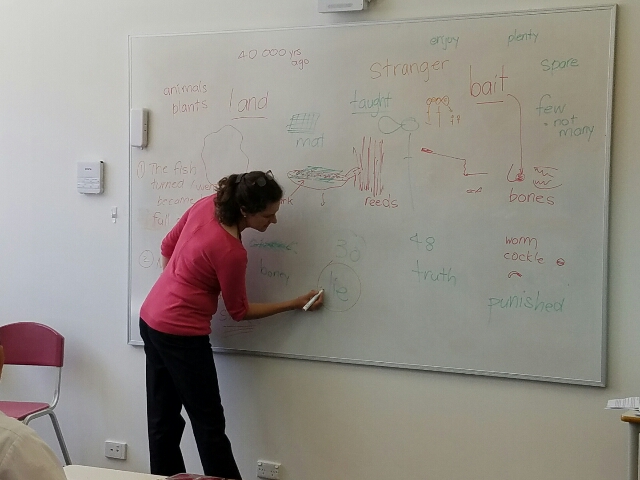 40.000 yrs
ago
enjoy
plenty
stranger
spare
animals
plants
land
taught
bait
few
• not
many
mat
① The fish
turned
reeds
bones
full
48
worm
cockle
truth
lie
punished